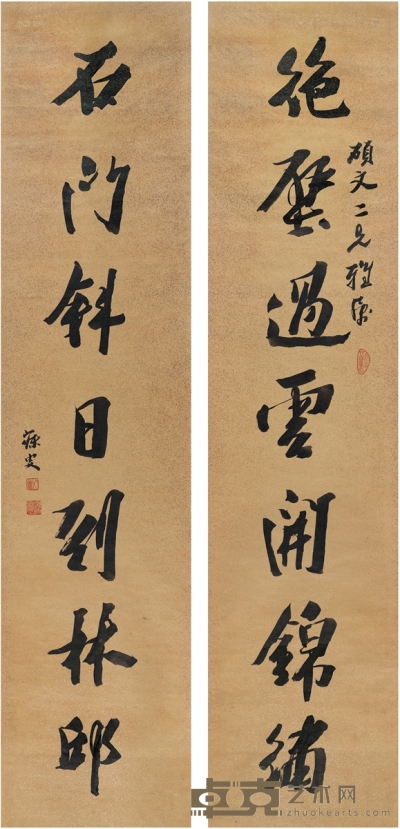 絕壁過雲開錦繡
碩文二兄雅屬
石門斜日到林邱
卓克艺术网
zhuokearts.com